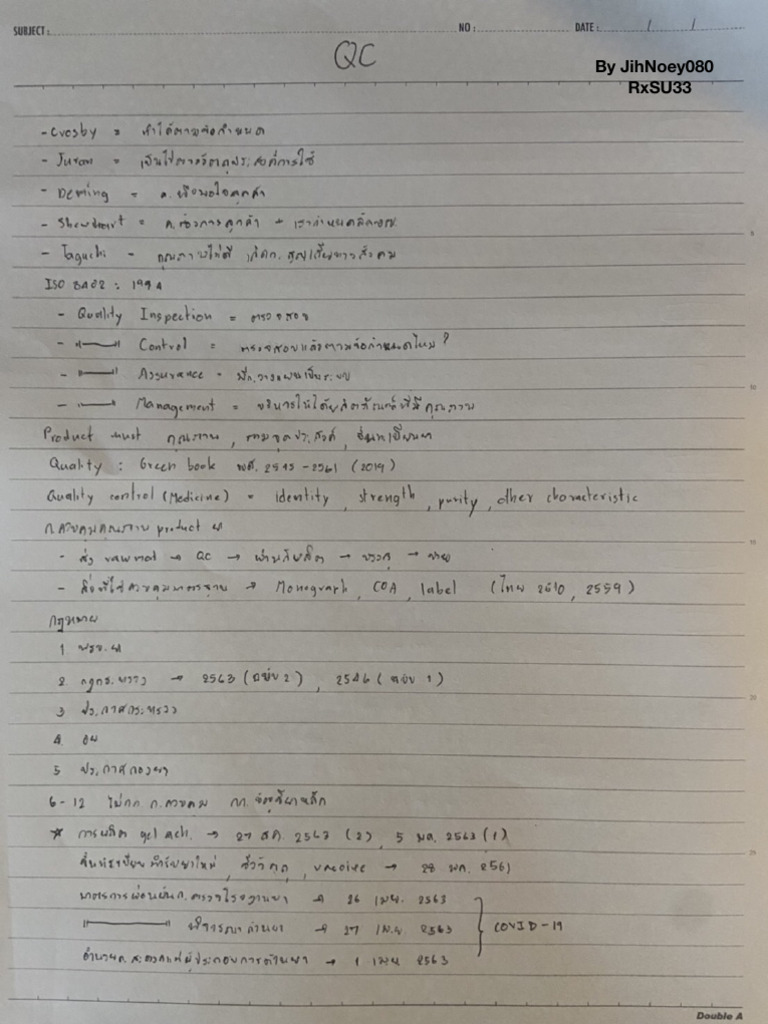 SUBJECT : NO : DATE : / /
QC
By JihNoey080
RxSU33
- Crosby = ทำได้ตามข้อกำหนด
- Juran = เป็นไปตามวัตถุประสงค์การใช้
- Deming = ค.พึงพอใจลูกค้า
- Shewhart = ค.ต้องการลูกค้า
- Taguchi - คุณภาพไม่ดี เกิดก. สูญเสียทางสังคม
ISO 8402 : 1994
- Quality Inspection = ตรวจสอบ
- Control = ตรวจสอบแล้วตามข้อกำหนดไหม?
- Assurance = มีก.วางแผนเป็นระบบ
- Management = บริหารให้ได้ผลิตภัณฑ์ที่มีคุณภาพ
Product must คุณภาพ , ตามจุดประสงค์ , ขึ้นทะเบียนยา
Quality : Green book พศ. 2545 - 2561 (2019)
Quality control (Medicine) = Identity , strength , purity , other characteristic
ก.ควบคุมคุณภาพ product ยา
- ส่ง raw mat → QC → → บรรจุ → ขาย
- สิ่งที่ใช้ควบคุมมาตรฐาน → Monograph , COA , label (ไทย 2510 , 2559)
กฎหมาย
1. พรบ.ยา
2. กฎกระทรวง → 2563 (ฉบับ 2) , 2546 (ฉบับ 1)
3 ประกาศกระทรวง
4. อย
5 ประกาศกองยา
6 - 12 ก.ควบคุม
* การผลิต gel alch. → 27 2563 (2) , 5 มค. 2563 (1)
ขึ้นทะเบียนตำรับยาใหม่ , ชีววัตถุ , vaccine → 28 พค. 256
มาตรการผ่อนผันก. ตรวจโรงงานยา → 26 เมย. 2563
พิจารณาด้านยา → 27 เม.ย. 2563 COVID-19
อำนวยค. สะดวกแก่ผู้ประกอบการด้านยา → 1 เมย 2563
Double A